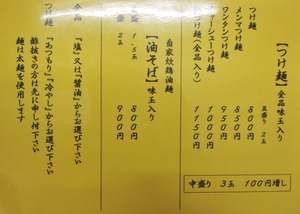 【つけ麺】全品味玉入り
並盛り 2玉
つけ麺 800円
メンマつけ麺 850円
ワンタンつけ麺 950円
チャーシューつけ麺 1100円
つけ麺(全品入り) 1150円
中盛り 3玉 100円増し
自家炊鶏油麺
【油そば】味玉入り
1.5玉 800円
2玉 900円
全品
『塩』又は『醤油』からお選び下さい
つけ麺
『あつもり』『冷やし』からお選び下さい
酢抜きの方は先に申し付け下さい
麺は太麺を使用します